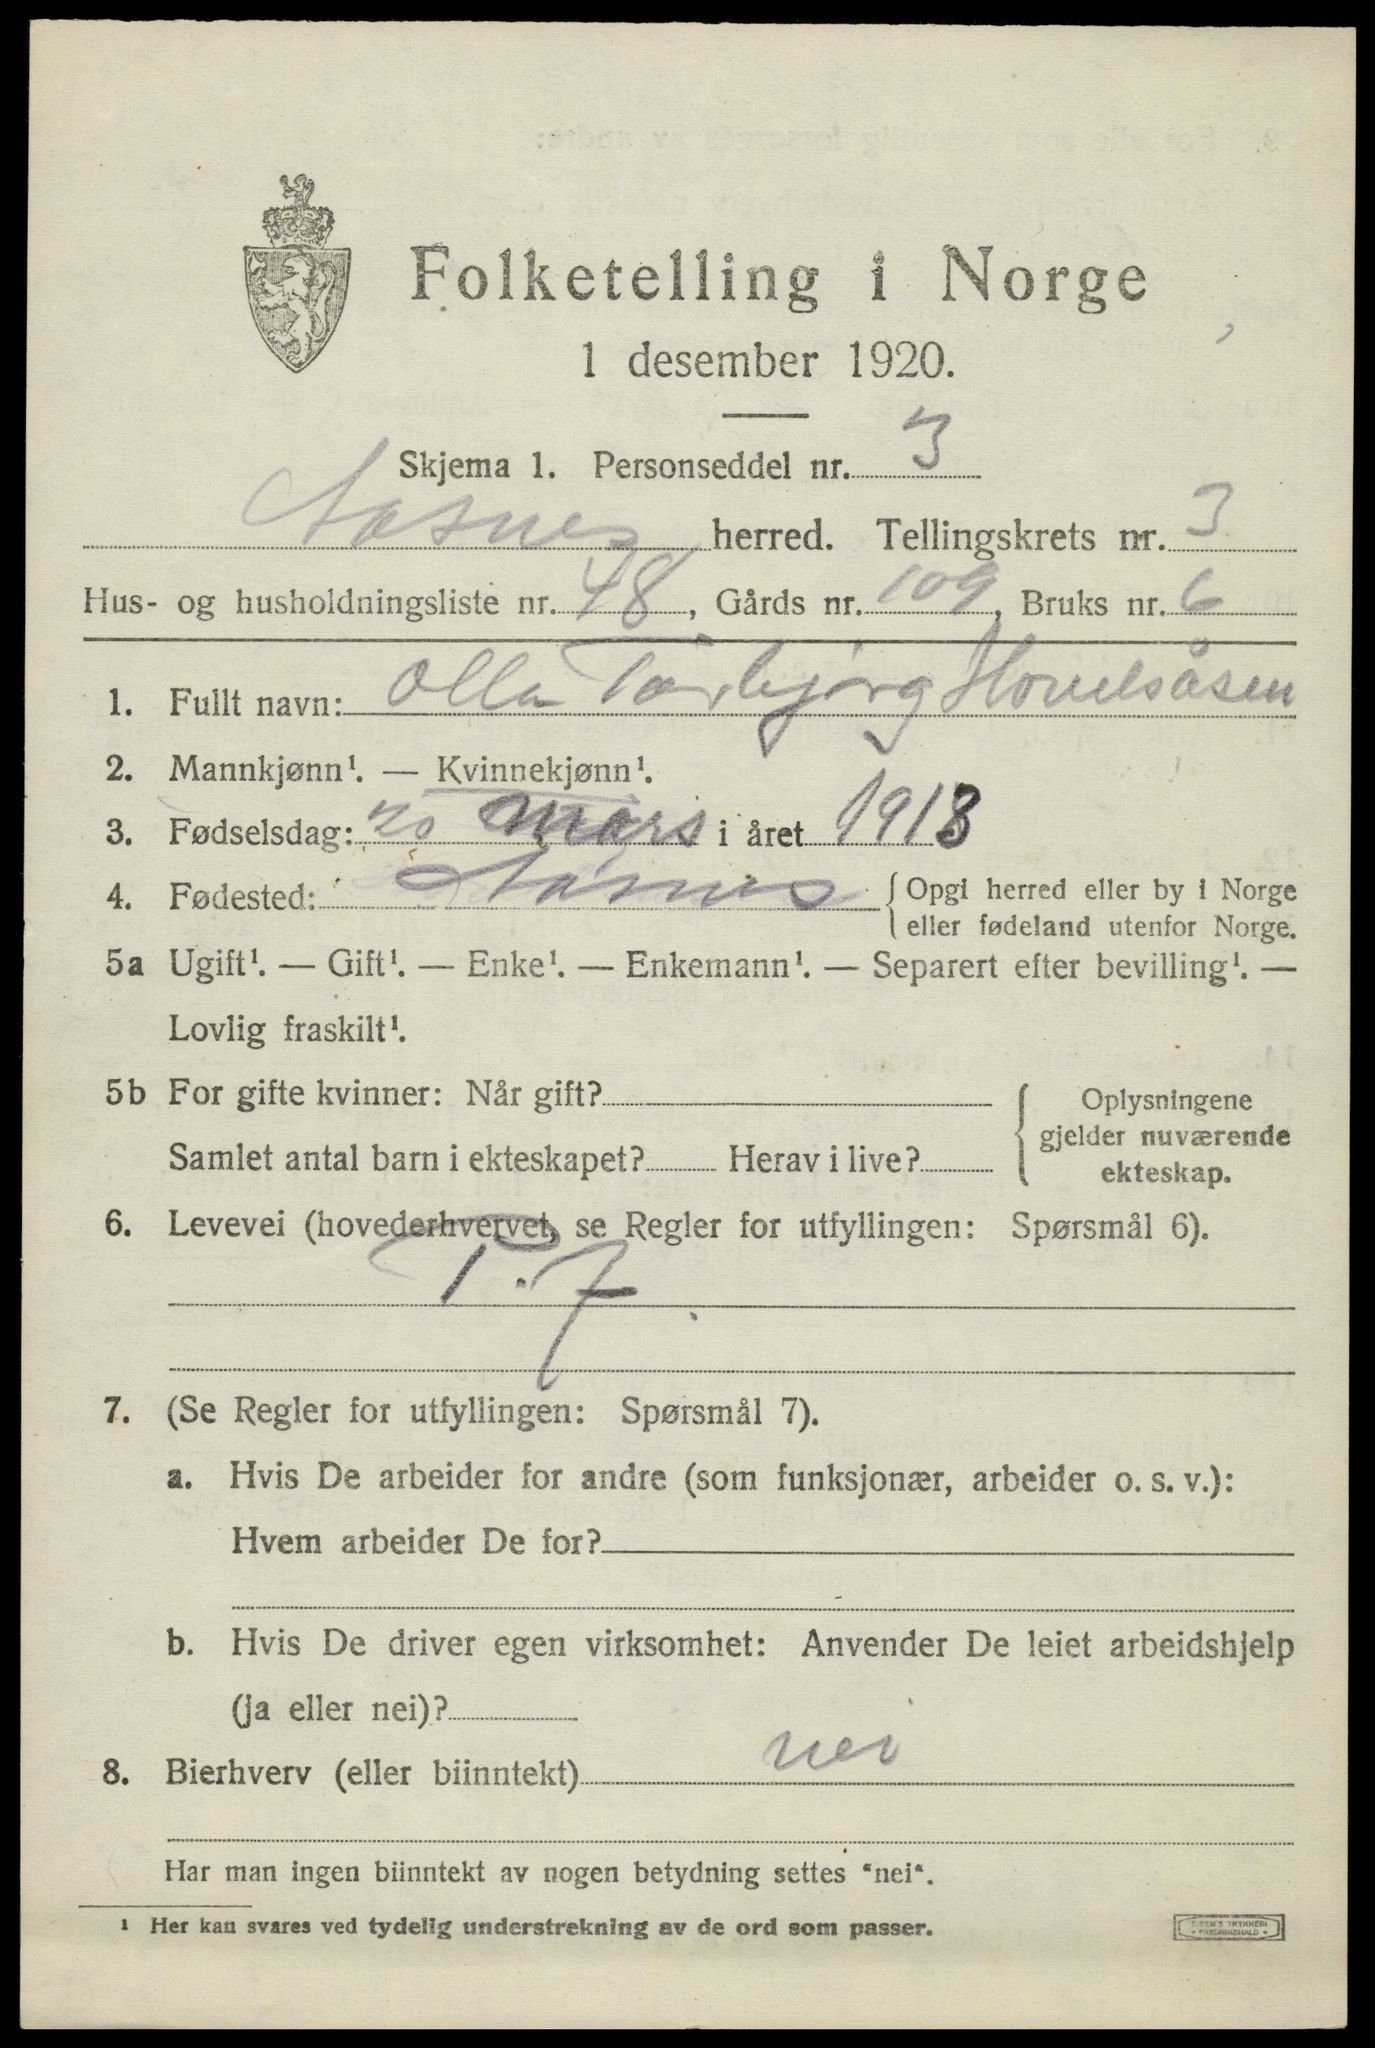 Folketelling i Norge
1 desember 1920.
Skjema 1. Personseddel nr. 3
Aasnes herred. Tellingskrets nr. 3
Hus- og husholdningsliste nr. 48, Gårds nr. 109, Bruks nr. 6
1. Fullt navn: Olla Torbjørg Hovelsåsen
2. Mannkjønn¹. — Kvinnekjønn¹.
3. Fødselsdag: 20 mars i året 1918
4. Fødested: Aasnes { Opgi herred eller by i Norge
eller fødeland utenfor Norge.
5a Ugift¹. — Gift¹. — Enke¹. — Enkemann¹. — Separert efter bevilling¹. —
Lovlig fraskilt¹.
5b For gifte kvinner: Når gift? { Oplysningene
gjelder nuværende
Samlet antal barn i ekteskapet? Herav i live? ekteskap.
6. Levevei (hovederhvervet, se Regler for utfyllingen: Spørsmål 6).
P. 7
7. (Se Regler for utfyllingen: Spørsmål 7).
a. Hvis De arbeider for andre (som funksjonær, arbeider o. s. v.):
Hvem arbeider De for?
b. Hvis De driver egen virksomhet: Anvender De leiet arbeidshjelp
(ja eller nei)?
8. Bierhverv (eller biinntekt) nei
Har man ingen biinntekt av nogen betydning settes "nei".
¹ Her kan svares ved tydelig understrekning av de ord som passer.